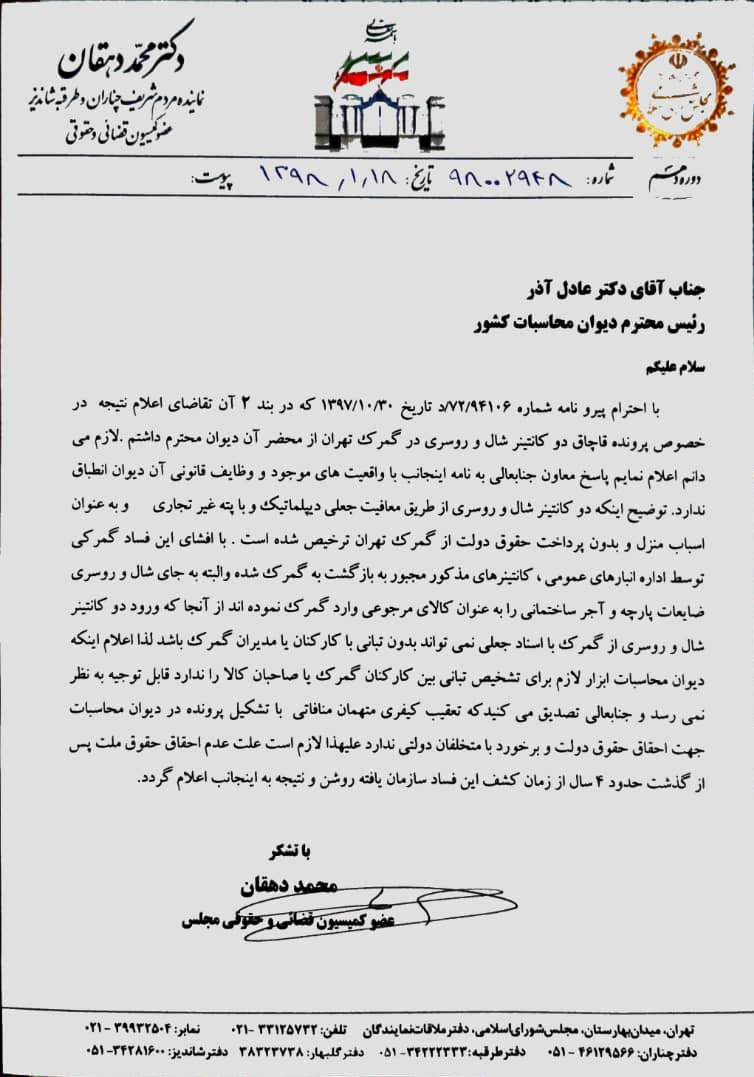 دکتر محمّد دهقان
نماینده مردم شریف چناران و طرقبه شاندیز
عضو کمیسیون قضائی و حقوقی
مجلس شورای اسلامی
دوره دهم
شماره: ۹۸۰۰۲۹۴۸ تاریخ: ۱۳۹۸/۱/۱۸ پیوست:
جناب آقای دکتر عادل آذر
رئیس محترم دیوان محاسبات کشور
سلام علیکم
با احترام پیرو نامه شماره ۷۲/۹۴۱۰۶/د تاریخ ۱۳۹۷/۱۰/۳۰ که در بند ۲ آن تقاضای اعلام نتیجه در
خصوص پرونده قاچاق دو کانتینر شال و روسری در گمرک تهران از محضر آن دیوان محترم داشتم .لازم می
دانم اعلام نمایم پاسخ معاون جنابعالی به نامه اینجانب با واقعیت های موجود و وظایف قانونی آن دیوان انطباق
ندارد. توضیح اینکه دو کانتینر شال و روسری از طریق معافیت جعلی دیپلماتیک و با پته غیر تجاری و به عنوان
اسباب منزل و بدون پرداخت حقوق دولت از گمرک تهران ترخیص شده است . با افشای این فساد گمرکی
توسط اداره انبارهای عمومی ، کانتینرهای مذکور مجبور به بازگشت به گمرک شده والبته به جای شال و روسری
ضایعات پارچه و آجر ساختمانی را به عنوان کالای مرجوعی وارد گمرک نموده اند از آنجا که ورود دو کانتینر
شال و روسری از گمرک با اسناد جعلی نمی تواند بدون تبانی با کارکنان یا مدیران گمرک باشد لذا اعلام اینکه
دیوان محاسبات ابزار لازم برای تشخیص تبانی بین کارکنان گمرک یا صاحبان کالا را ندارد قابل توجیه به نظر
نمی رسد و جنابعالی تصدیق می کنیدکه تعقیب کیفری متهمان منافاتی با تشکیل پرونده در دیوان محاسبات
جهت احقاق حقوق دولت و برخورد با متخلفان دولتی ندارد علیهذا لازم است علت عدم احقاق حقوق ملت پس
از گذشت حدود ۴ سال از زمان کشف این فساد سازمان یافته روشن و نتیجه به اینجانب اعلام گردد.
با تشکر
محمد دهقان
عضو کمیسیون قضائی و حقوقی مجلس
تهران، میدان بهارستان، مجلس شورای اسلامی، دفتر ملاقات نمایندگان تلفن: ۳۳۱۲۵۷۳۲ -۰۲۱ نمابر: ۳۹۹۳۲۵۰۴ - ۰۲۱
دفتر چناران: ۴۶۱۲۹۵۶۶ - ۰۵۱ دفتر طرقبه: ۳۴۲۲۲۳۳۳- ۰۵۱ دفتر گلبهار: ۳۸۳۲۳۷۳۸ دفتر شاندیز: ۳۴۲۸۱۶۰۰- ۰۵۱